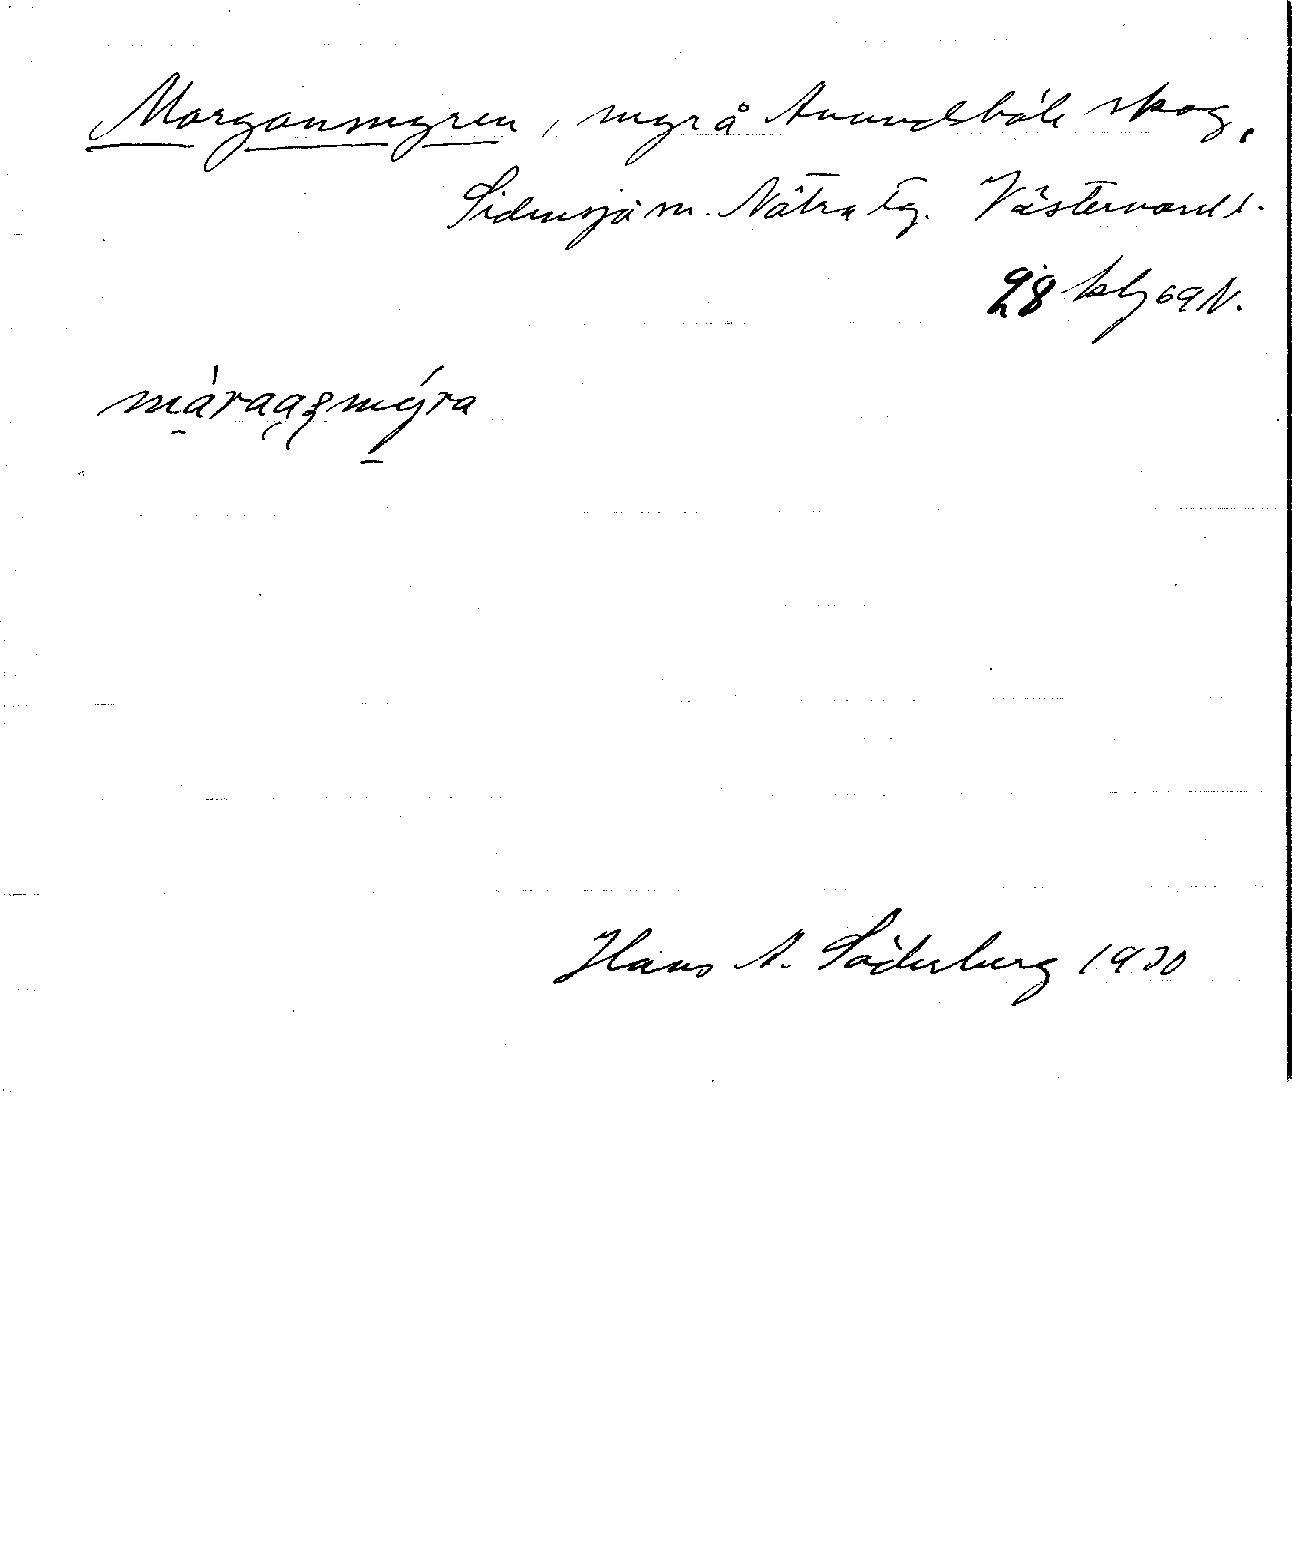 Morganmyren, myr å Anundsböle skog,
Sidensjö sn. Nätra tg. Västernorrl l.
28 klg 69 N.
máraaʒmýra
Hans A. Söderberg 1930